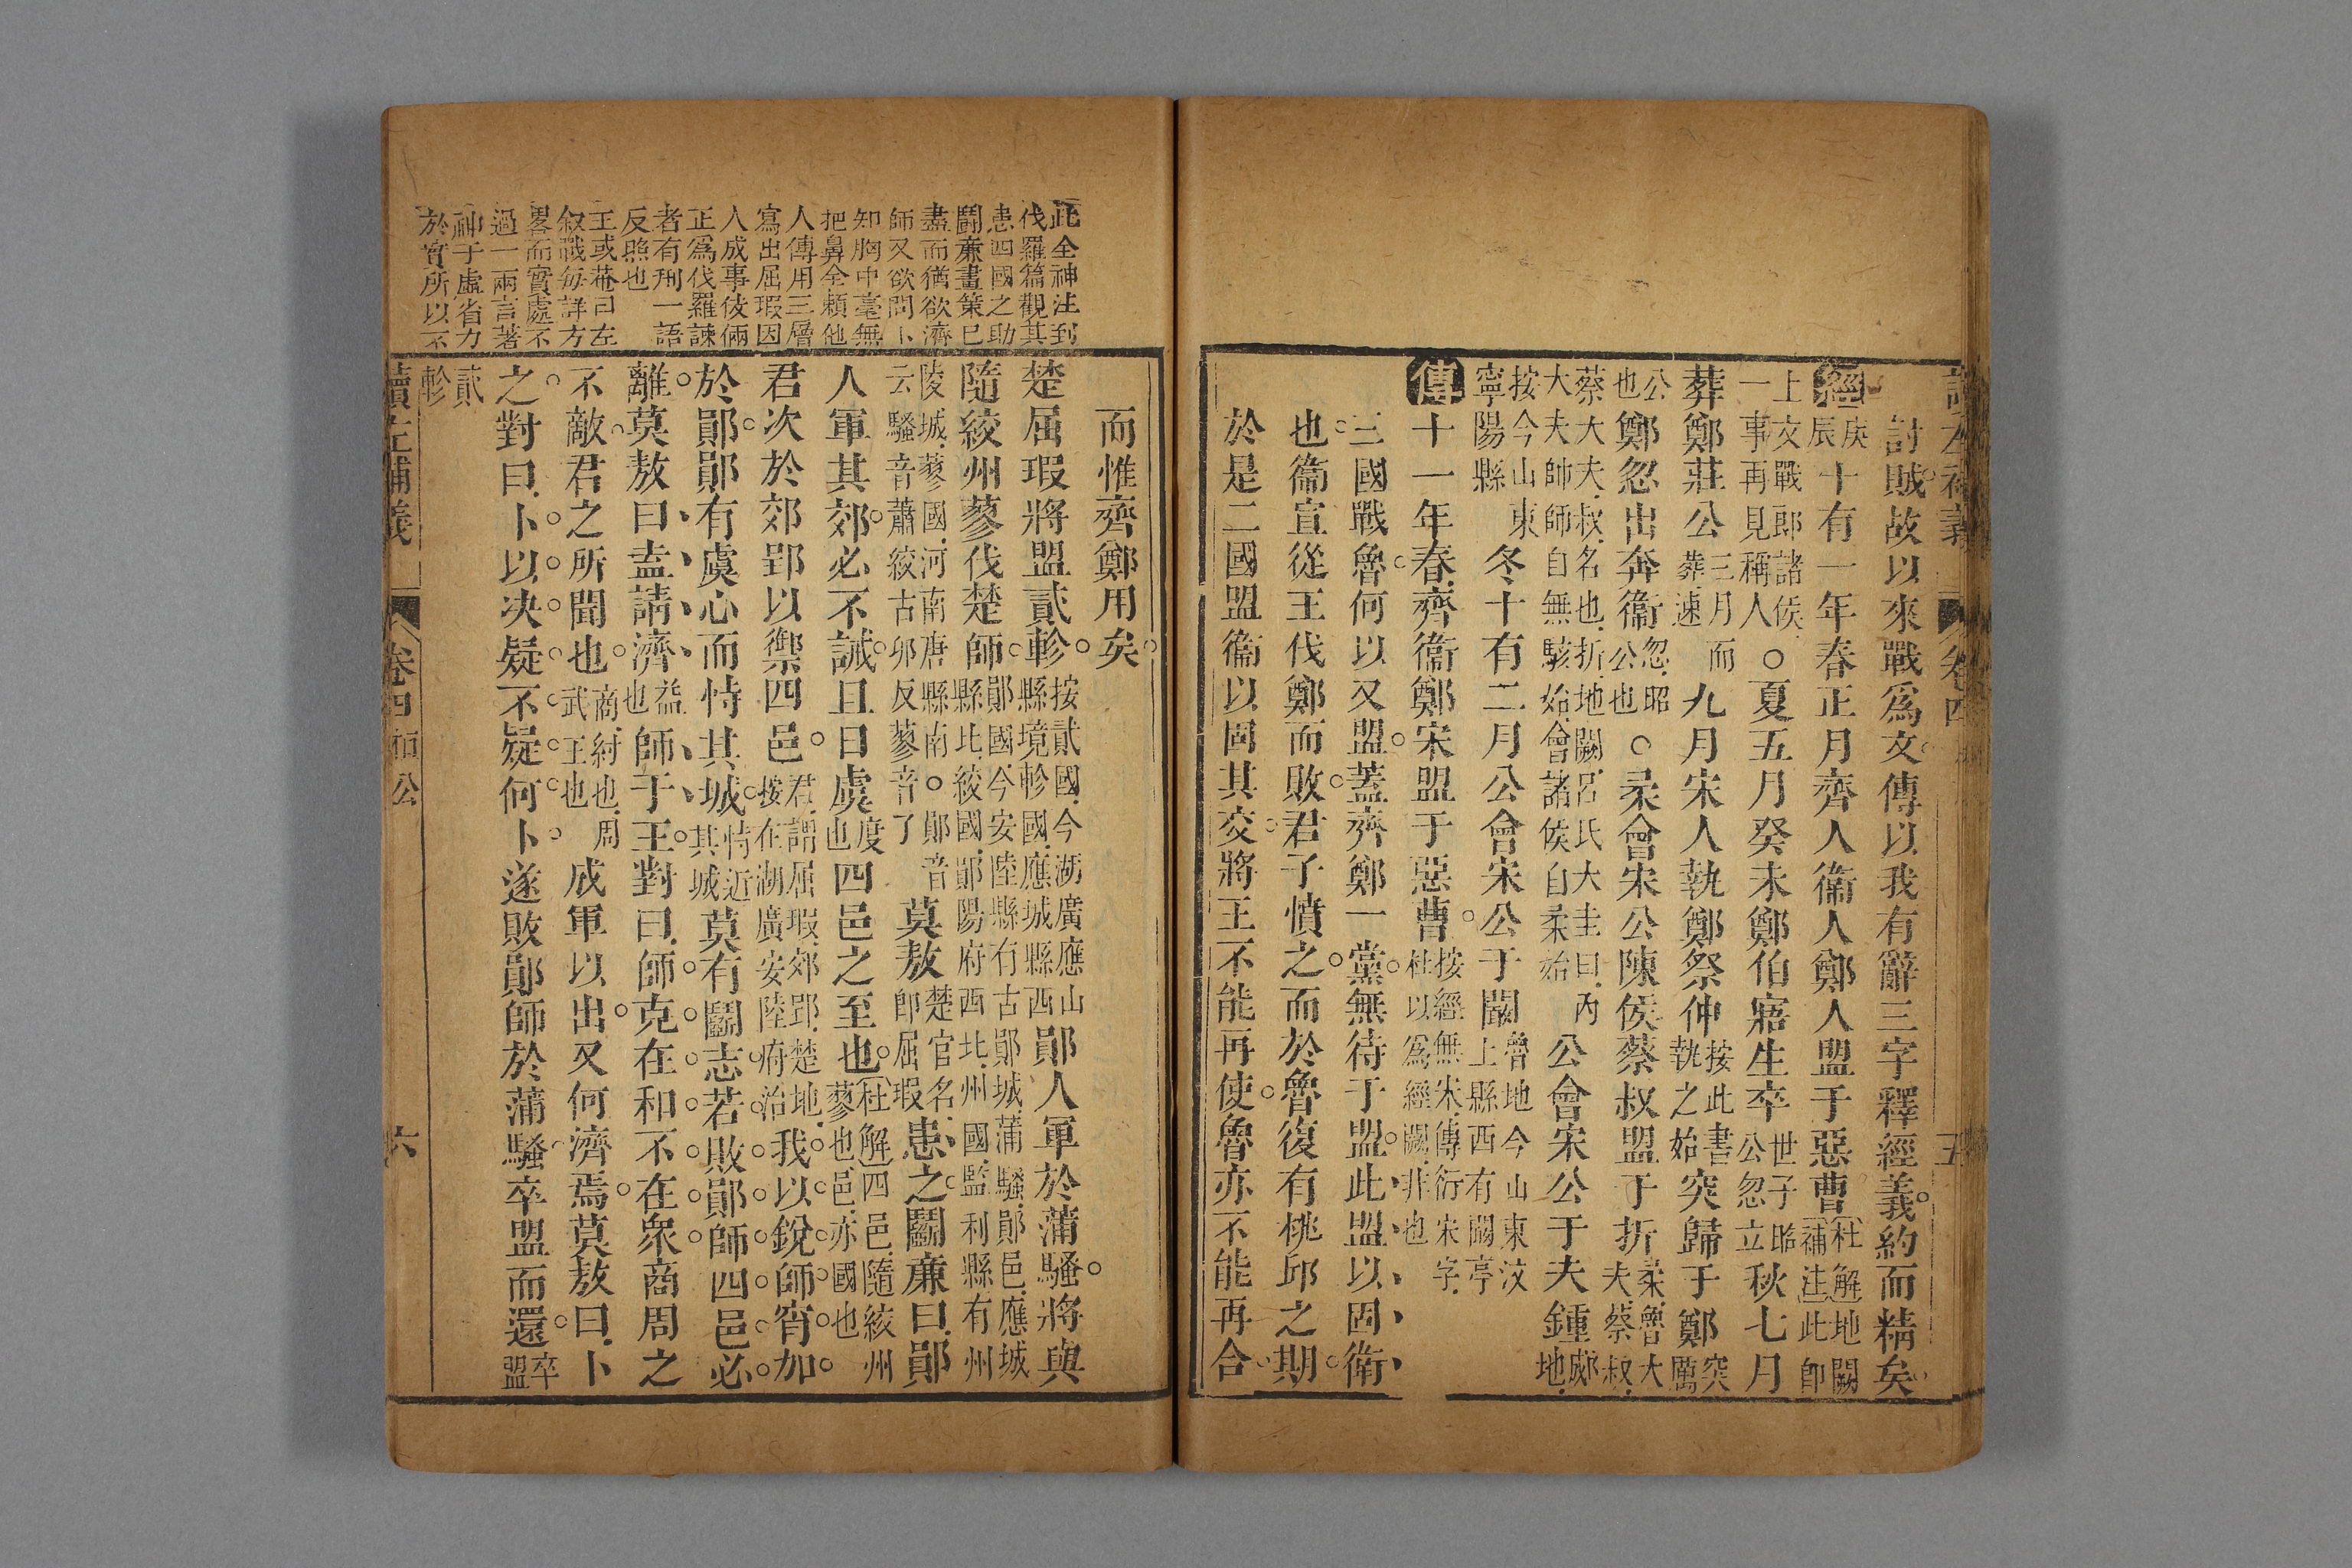 討賊故以來戰爲文傳以我有辭三字釋經義約而精矣
經庚辰十有一年春正月齊人衞人鄭人盟于惡曹杜解地闕補注此卽
上文戰郎諸侯一事再見稱人○夏五月癸未鄭伯寤生卒世子昭公忽立秋七月
葬鄭莊公三月而葬速九月宋人執鄭祭仲按此書執之始突歸于鄭突厲
公也鄭忽出奔衞忽昭公也○柔會宋公陳侯蔡叔盟于折柔魯大夫蔡叔
蔡大夫叔名也折地闕呂氏大圭曰內大夫師師自無駭始會諸侯自柔始公會宋公于夫鍾郕地
按今山東寧陽縣冬十有二月公會宋公于闞魯地今山東汶上縣西有闞亭
傳十一年春齊衞鄭宋盟于惡曹按經無宋傳衍宋字杜以爲經闕非也
三國戰魯何以又盟蓋齊鄭一黨無待于盟此盟以固衞
也衞宣從王伐鄭而敗君子憤之而於魯復有桃邱之期
於是二國盟衞以固其交將王不能再使魯亦不能再合
而惟齊鄭用矣
楚屈瑕將盟貳軫按貳國今湖廣應山縣境軫國應城縣西鄖人軍於蒲騷將與
隨絞州蓼伐楚師鄖國今安陸縣有古鄖城蒲騷鄖邑應城縣北絞國鄖陽府西北州國監利縣有州
陵城蓼國河南唐縣南○鄖音云騷音蕭絞古卯反蓼音了莫敖楚官名卽屈瑕患之鬭廉曰鄖
人軍其郊必不誡且日虞度也四邑之至也杜解四邑隨絞州蓼也邑亦國也
君次於郊郢以禦四邑君謂屈瑕郊郢楚地按在湖廣安陸府治我以銳師宵加
於鄖鄖有虞心而恃其城恃近其城莫有鬭志若敗鄖師四邑必
離莫敖曰盍請濟益也師于王對曰師克在和不在衆商周之
不敵君之所聞也商紂也周武王也成軍以出又何濟焉莫敖曰卜
之對曰卜以決疑不疑何卜遂敗鄖師於蒲騷卒盟而還卒盟
貳軫
讀左補義
卷四桓公
六
此全神注到
伐羅篇觀其
患四國之助
鬭廉畫策已
盡而猶欲濟
師又欲問卜
知胸中毫無
把鼻全頼他
人傳用三層
寫出屈瑕因
人成事伎倆
正爲伐羅諫
者有刑一語
反照也
王或菴曰左
叙戰每詳方
畧而實處不
過一兩言著
神于虛省力
於實所以不